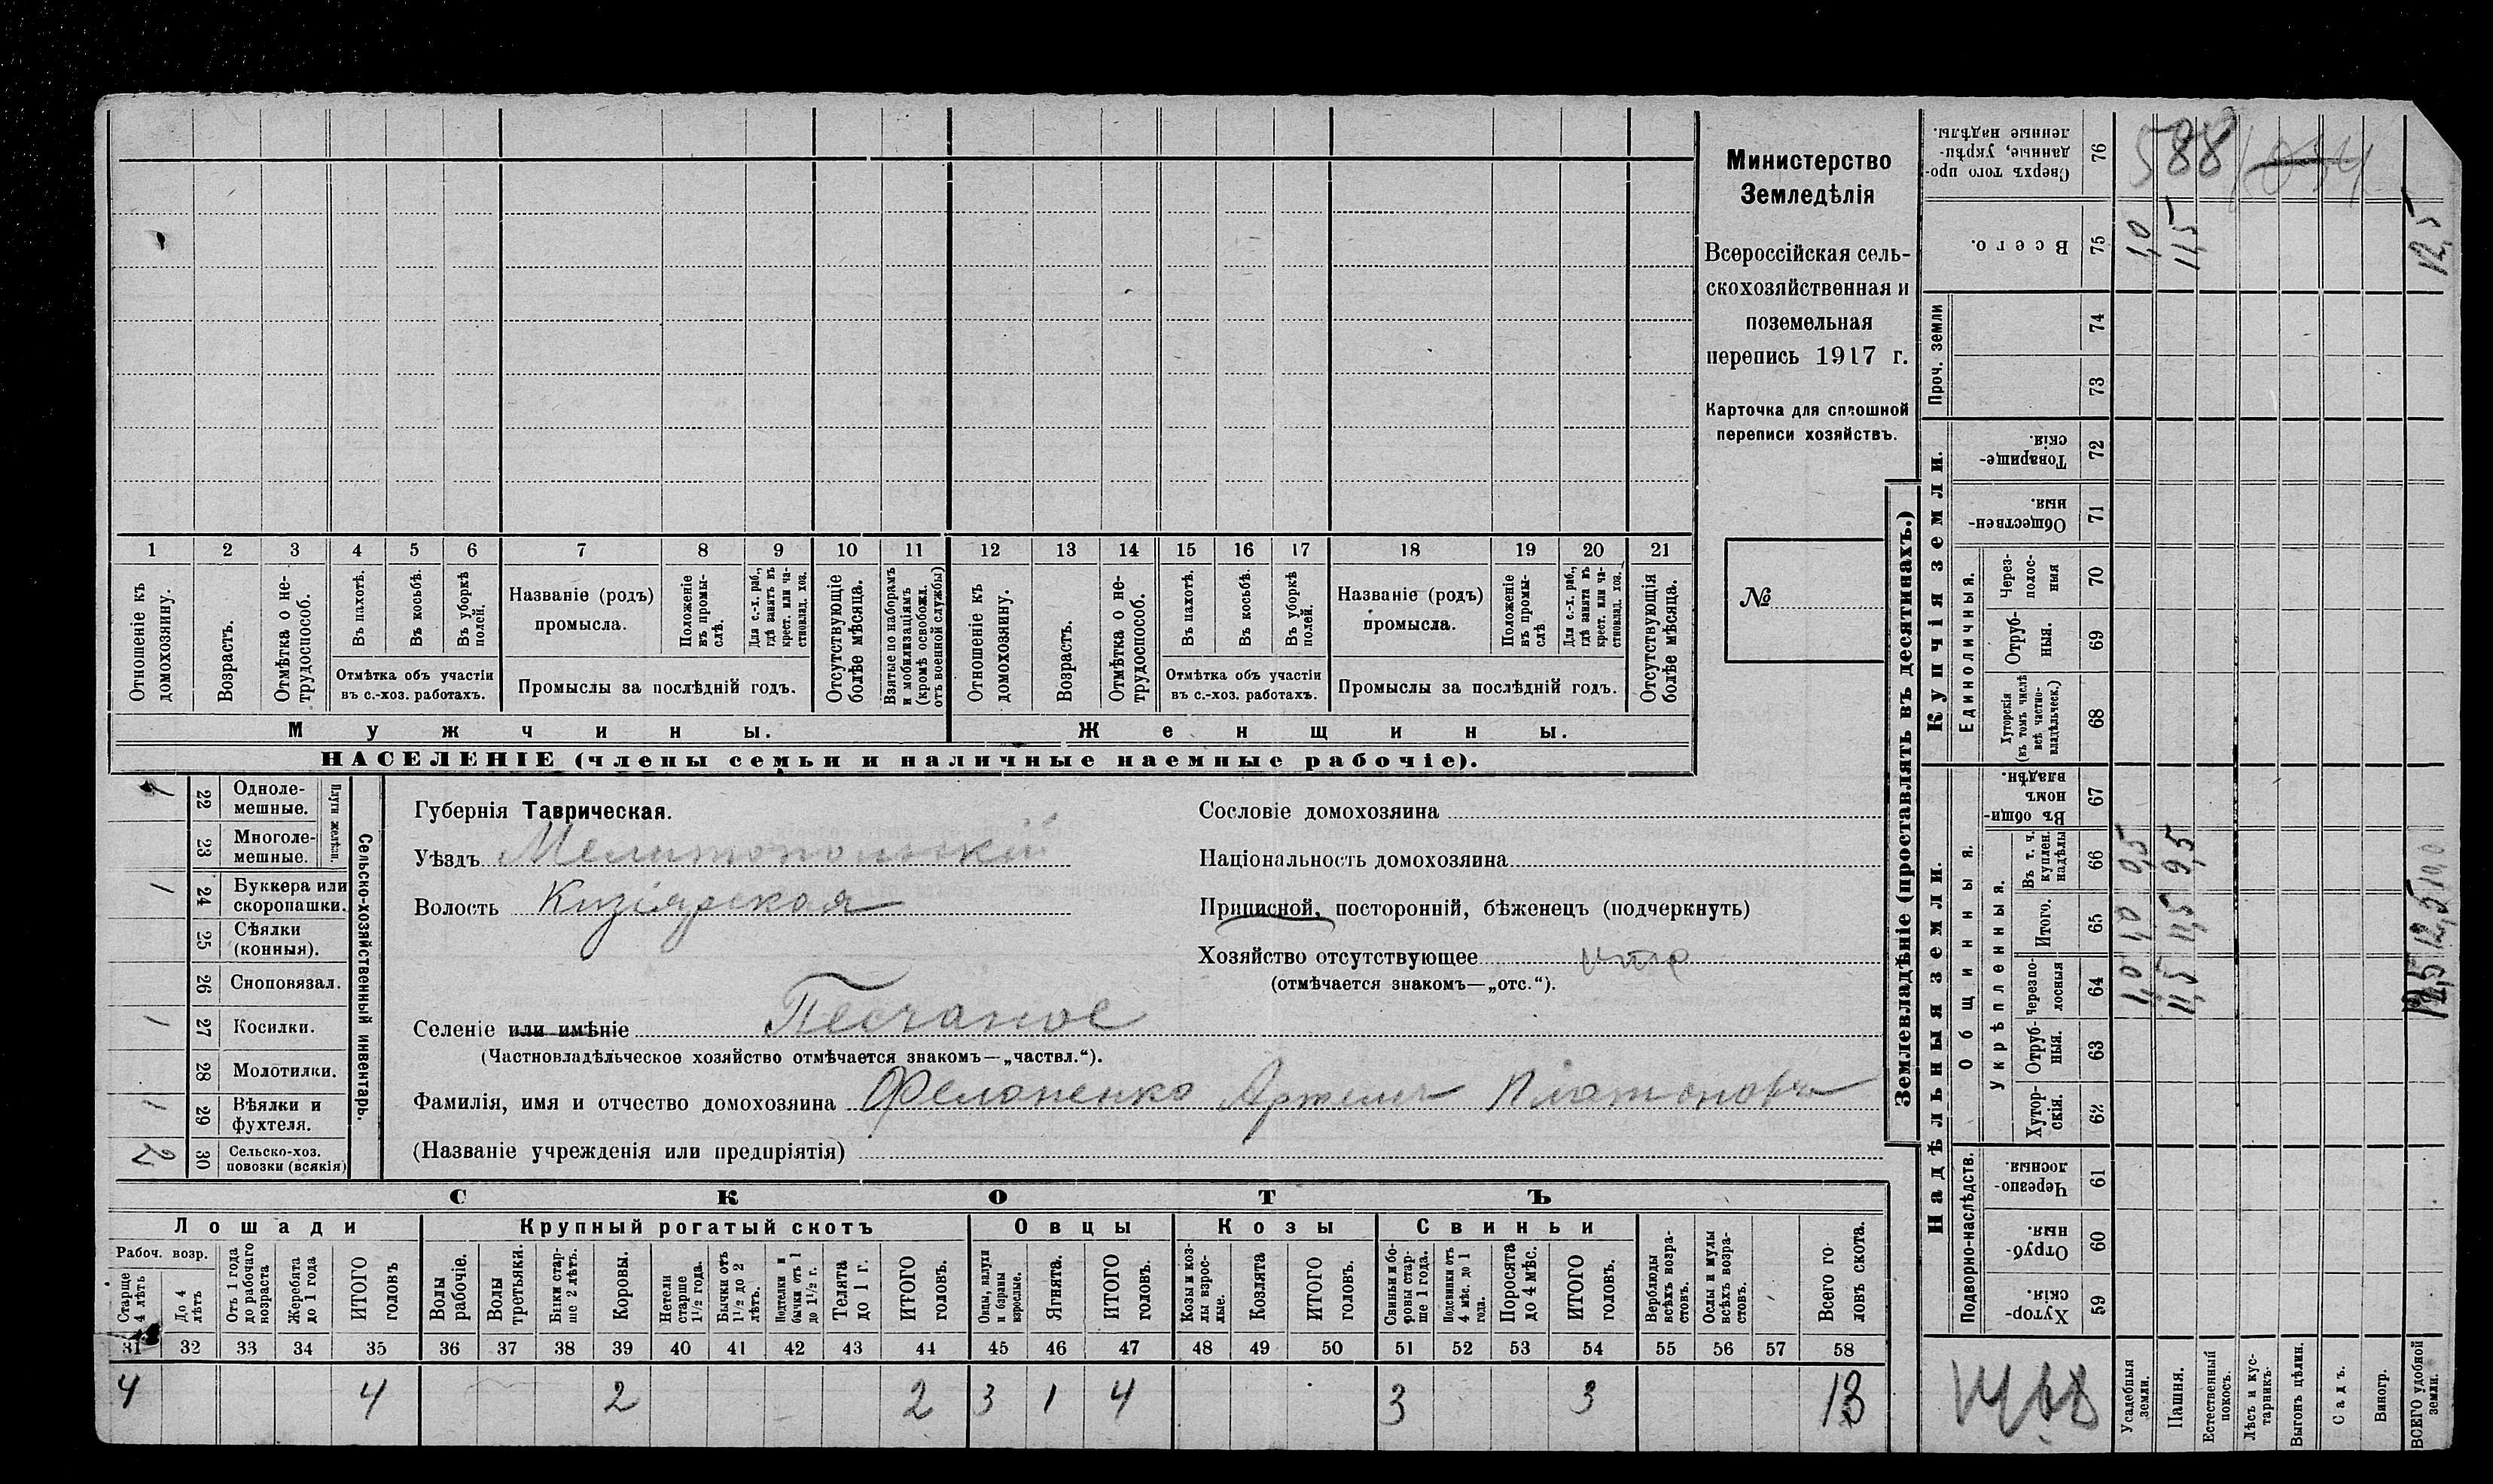 Министерство
Земледѣлія
Всероссійская сель-
скохозяйственная и
поземельная
перепись 1917 г.
Карточка для сплошной
переписи хозяйствъ.
№
1 2 3 4 5 6 7 8 9 10 11 12 13 14 15 16 17 18 19 20 21
Отношеніе къ домохозяину.
Возрастъ.
Отмѣтка о не-трудоспособ.
Въ пахотѣ.
Въ косьбѣ.
Въ уборкѣ полей.
Отмѣтка объ участіи
въ с.-хоз. работахъ.
Названіе (родъ)
промысла.
Положеніе въ промы-слѣ.
Для с.-х. раб., гдѣ занятъ въ крест. или ча-стновлад. хоз.
Промыслы за послѣдній годъ.
Отсутствующіе болѣе мѣсяца.
Взятые по наборамъ и мобилизаціямъ (кромѣ освобожд. отъ военной службы)
Отношеніе къ домохозяину.
Возрастъ.
Отмѣтка о не-трудоспособ.
Въ пахотѣ.
Въ косьбѣ.
Въ уборкѣ полей.
Отмѣтка объ участіи
въ с.-хоз. работахъ.
Названіе (родъ)
промысла.
Положеніе въ промы-слѣ
Для с.-х. раб., гдѣ занята въ крест. или ча-стновлад. хоз.
Промыслы за послѣдній годъ.
Отсутствующія болѣе мѣсяца.
Мужчины.
Женщины.
НАСЕЛЕНІЕ (члены семьи и наличные наемные рабочіе).
Сельско-хозяйственный инвентарь.
Плуги желѣзн.
22 Одноле-мешные.
23 Многоле-мешные.
1 24 Буккера или скоропашки.
25 Сѣялки (конныя).
26 Сноповязал.
1 27 Косилки.
28 Молотилки.
1 29 Вѣялки и фухтеля.
2 30 Сельско-хоз. повозки (всякія)
Губернія Таврическая.
Уѣздъ Мелитопольскій
Волость Кизіярская
Селеніе или имѣніе Песчаное
(Частновладѣльческое хозяйство отмѣчается знакомъ—„частвл.“).
Фамилія, имя и отчество домохозяина Фелоненко Артемъ Платоновъ
(Названіе учрежденія или предпріятія)
Сословіе домохозяина
Національность домохозяина
Приписной, посторонній, бѣженецъ (подчеркнуть)
Хозяйство отсутствующее
(отмѣчается знакомъ—„отс.“).
СКОТЪ
Лошади
Крупный рогатый скотъ
Овцы
Козы
Свиньи
Рабоч. возр.
Старше 4 лѣтъ
До 4 лѣтъ
Отъ 1 года до рабочаго возраста
Жеребята до 1 года
ИТОГО головъ
Волы рабочіе.
Волы третьяки.
Быки стар-ше 2 лѣтъ.
Коровы.
Нетели старше 1½ года.
Бычки отъ 1½ до 2 лѣтъ.
Подтелки и бычки отъ 1 до 1½ г.
Телята до 1 г.
ИТОГО головъ.
Овцы, валухи и бараны взрослые.
Ягнята.
ИТОГО головъ.
Козы и коз-лы взрос-лые.
Козлята
ИТОГО головъ.
Свиньи и бо-ровы стар-ше 1 года.
Подсвинки отъ 4 мѣс. до 1 года.
Поросята до 4 мѣс.
ИТОГО головъ.
Верблюды всѣхъ возра-стовъ.
Ослы и мулы всѣхъ возра-стовъ.
Всего го-ловъ скота.
31 32 33 34 35 36 37 38 39 40 41 42 43 44 45 46 47 48 49 50 51 52 53 54 55 56 57 58
4 4 2 2 3 1 4 3 3 13
Землевладѣніе (проставлять въ десятинахъ.)
Надѣльныя земли.
Купчія земли.
Проч. земли
Подворно-наслѣдств.
Общинныя.
Укрѣпленныя.
Единоличныя.
76 Сверхъ того про-данные, укрѣп-ленные надѣлы.
75 Всего.
74
73
72 Товарище-скія.
71 Обществен-ныя.
70 Через-полос-ныя
69 Отруб-ныя.
68 Хуторскія (въ томъ числѣ всѣ частно-владѣльческ.)
67 Въ общи-номъ владѣн.
66 Въ т. ч. куплен. надѣлы
65 Итого.
64 Черезпо-лосныя
63 Отруб-ныя.
62 Хутор-скія.
61 Черезпо-лосныя.
60 Отруб-ныя.
59 Хутор-скія.
Усадебныя земли.
Пашня.
Естественный покосъ.
Лѣсъ и кус-тарникъ.
Выгонъ цѣлин.
Садъ.
Виногр.
ВСЕГО удобной земли.
588
1,0 1,0 0,5 1,0
11,5 11,5 9,5 11,5
12,5 12,5 10,0 12,5